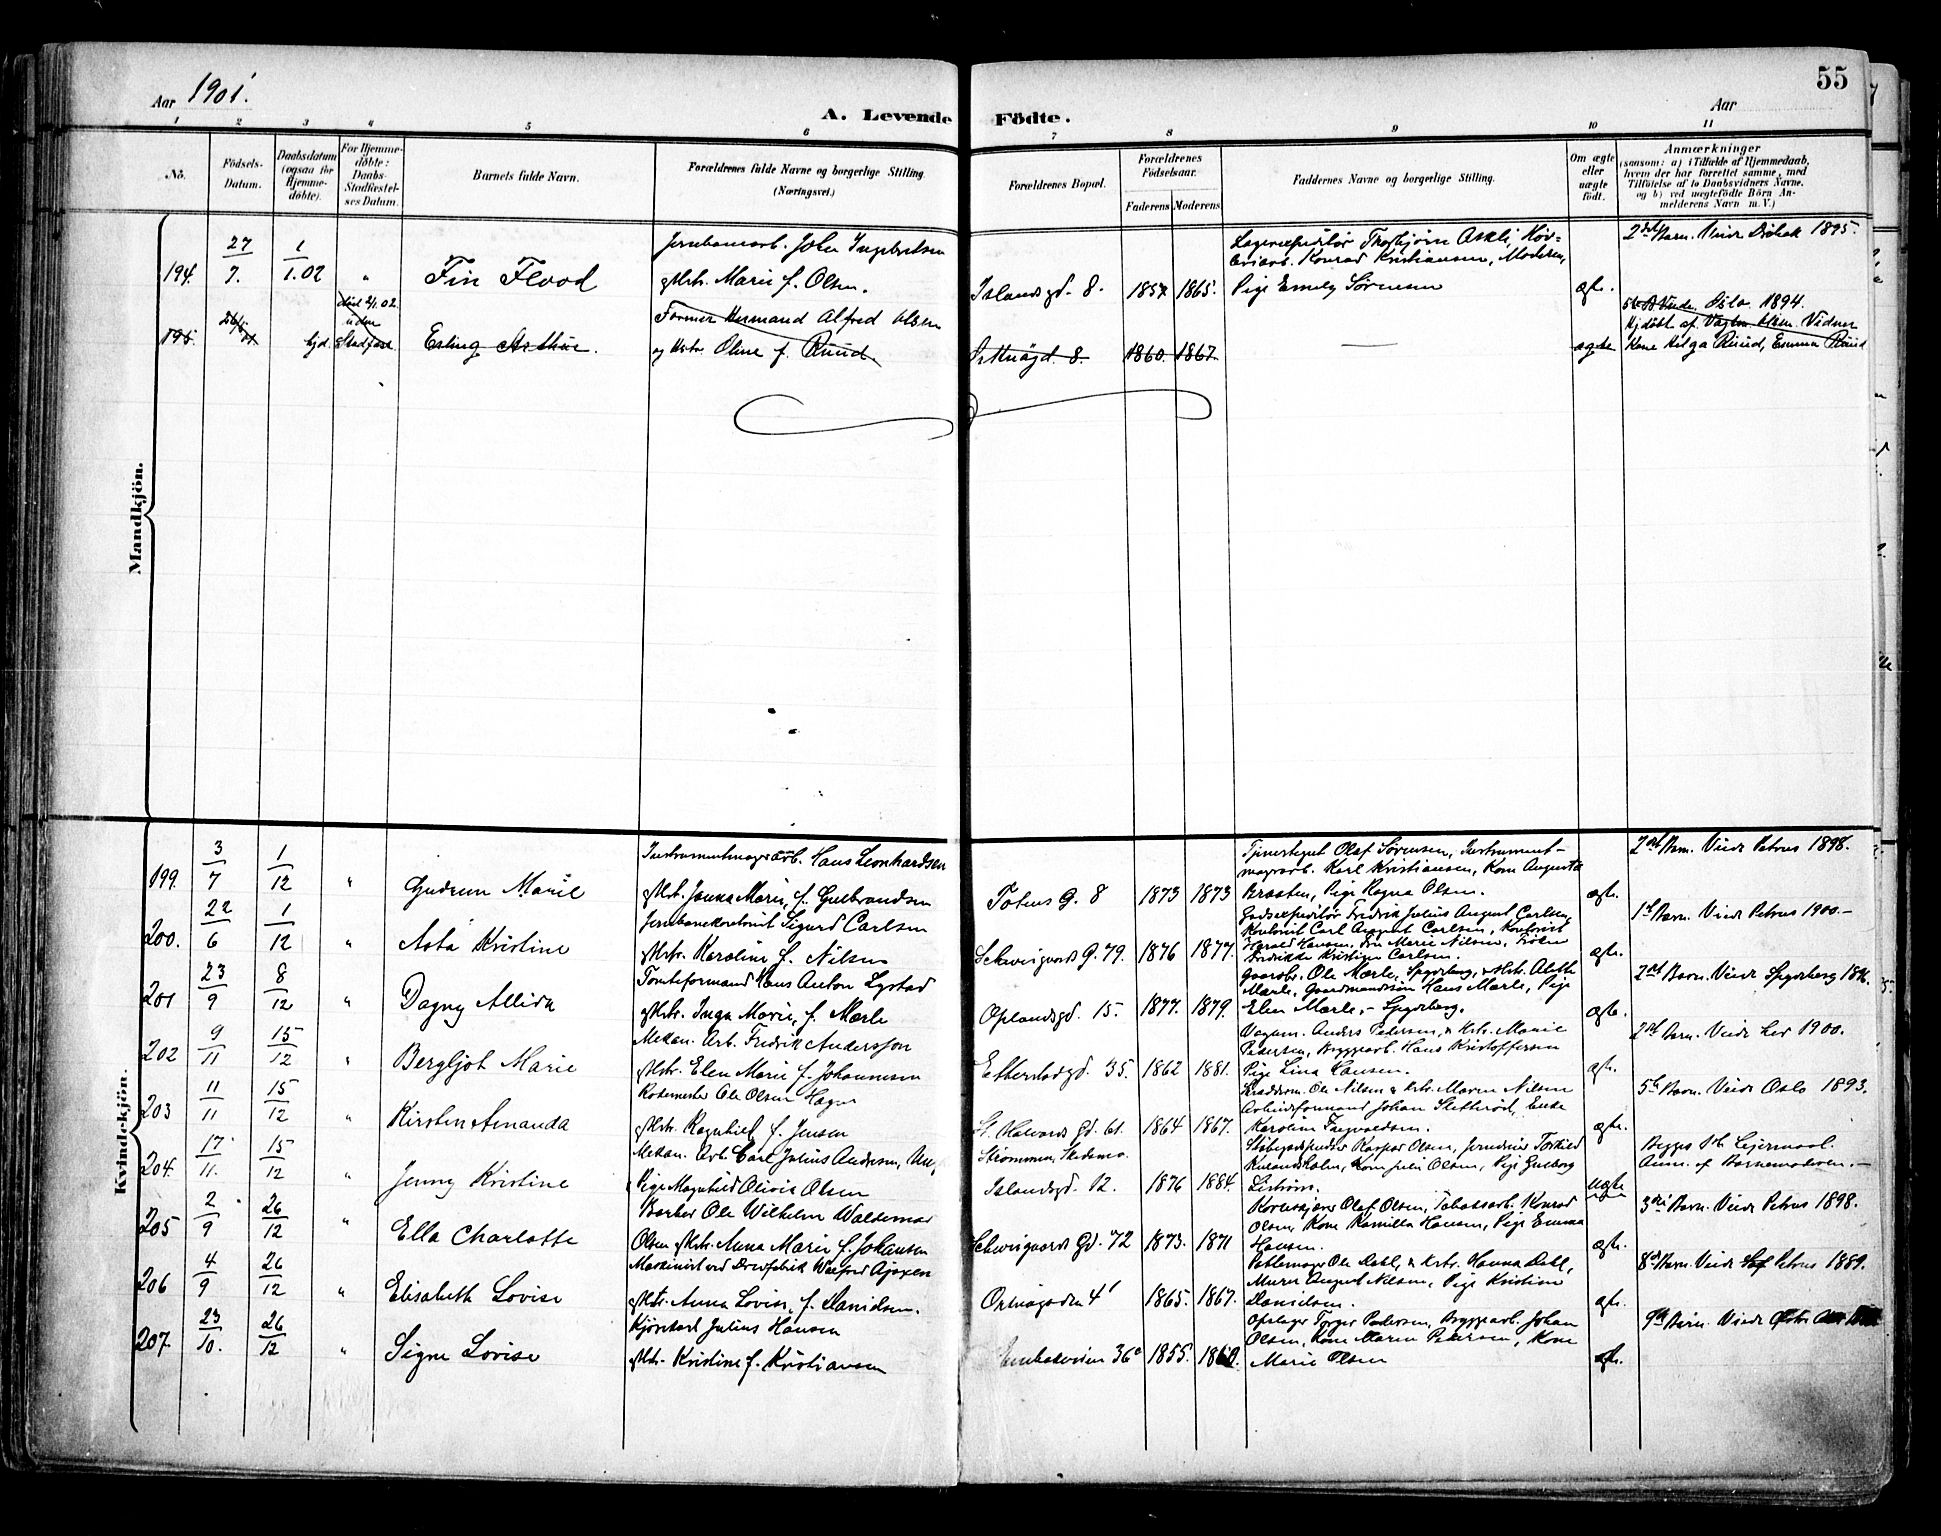 Aar 1901.
55
Aar
A. Levende Födte.
1 2 3 4 5 6 7 8 9 10 11
No.
Födsels-
Datum.
Daabsdatum
(ogsaa for
Hjemme-
döbte).
For Hjemme-
döbte:
Daabs-
Stadfæstel-
ses Datum.
Barnets fulde Navn.
Forældrenes fulde Navne og borgerlige Stilling
(Næringsvei.)
Forældrenes Bopæl.
Forældrenes
Födselsaar.
Faderens Moderens
Faddernes Navne og borgerlige Stilling.
Om ægte
eller
uægte
födt.
Anmærkninger
(saasom: a) i Tilfælde af Hjemmedaab,
hvem der har forrettet samme, med
Tilföielse af to Daabsvidners Navne,
og b) ved uægtefödte Börn An-
melderens Navn m. V.)
Mandkjön.
194. 27/7. 1/1.02 " Fin Flood
Jernbanearb. Johan Ingebretsen
og Hstr. Marie f. Olsen.
Islandsgd. 8. 1857 1865.
Konrad Kristiansen, Moderen,
Pige Emely Sörensen
ægte.
2det Barn. Viede 1895.
195. hjd. död 2/1.02
uden
Stadfæst
Erling Arthur.
Former Hermand Alfred Olsen
og Hstr. Oline f. Ruud.
8. 1860. 1867.
ægte
Viede Oslo 1894.
Hjdöbt af Olsen. Vidner
Kone Helga Ruud, Emma Ruud
Kvindekjön.
199. 3/7 1/12 " Gudrun Marie
Instrumentmagerarb. Hans Leonhardsen
og Hstr. Marie, f. Gulbrandsen
Totens G. 8 1873 1873
Tjenestegut Olaf Sörensen, Instrument-
magerarb. Karl Kristiansen, Kone Augusta
Braaten, Pige Ragna Olsen.
ægte.
2det Barn. Viede Petrus 1898.
200. 22/6 1/12 " Asta Kristine
Sigurd Carlsen
og Hstr. Karoline f. Nilsen
Schweigaards G. 79. 1876 1877.
Godsexpeditör Fredrik Julius August Carlsen,
Kontorist Carl August Carlsen, Kontorist
Harald Hansen, Fru Marie Nilsen, Fröken
Fredrikke Kristine Carlsen.
ægte.
1ste Barn. Viede Petrus 1900.-
201 23/9 8/12 " Dagny Allida
Tomteformand Hans Anton Lystad
og Hstr. Inga Marie, f. Mærli
Oplandsgd. 15. 1877. 1879.
Gaarbr. Ole Mærli, Spydeberg, & Hstr. Alethe
Mærli, Gaardmandssön Hans Mærli, Pige
Elen Mærli, - Spydeberg.
ægte.
2det Barn. Viede Spydeberg
202 9/11 15/12 " Bergljot Marie
Mekan. Arb. Fredrik Andersson
og Hstr. Elen Marie f. Johannesen
Etterstadgd. 35. 1862 1881.
Vogum. Anders Petersen, & Hstr. Marie
Petersen, Bryggearb. Hans Kristoffersen
Pige Lina Hansen.
ægte.
2det Barn. Viede 1900.
203 11/11 15/12 " Kirsten Amanda
Rodemester Ole Olsen
og Hstr. Ragnhild f. Jensen
St. Halvards Gd. 61. 1864 1867.
Ole Nilsen & Hstr. Maren Nilsen
Arbeidsformand Johan Enke
Karoline
ægte.
5te Barn. Viede Oslo 1893.
204. 17/11. 15/12 " Jenny Kristine
Mekan. Arb. Carl Julius Andersen,
Pige Magnhild Olivia Olsen
Strömmen, Skedsmo.
Islandsgd. 12. 1876 1884.
Kaspar Olsen, Torkild
Kone Julie Olsen, Pige
uægte
Begges 1ste Leiermaal.
Anm. af Barnemoderen.-
205 2/9 26/12 " Ella Charlotte
Barber Ole Wilhelm Waldemar
Olsen og Hstr. Anna Marie f. Johansen
Schweigaards Gd. 72 1873. 1871
Olaf Olsen, Tobaksarb. Konrad
Olsen, Kone Kamilla Hansen, Pige Emma
Hansen.
ægte.
3die Barn. Viede Petrus 1898.
206 4/9 26/12 " Elisabeth Lovise
Maskinist
og Hstr. Anna Lovise, f. Danielsen.
1865. 1867.
Ole Dahl, & Hstr. Hanna Dahl,
Murer August Nilsen, Pige Kristine
Danielsen.
ægte.
8de Barn. Viede Petrus 1889.
207. 23/10. 26/12 " Signe Lovise
Kjörekarl Julius Hansen
og Hstr. Kristine f. Kristiansen
1855.
Torger Pedersen, Bryggearb. Johan
Olsen, Kone Maren Petersen, Kone
Marie Olsen
ægte.
9de Barn. Viede